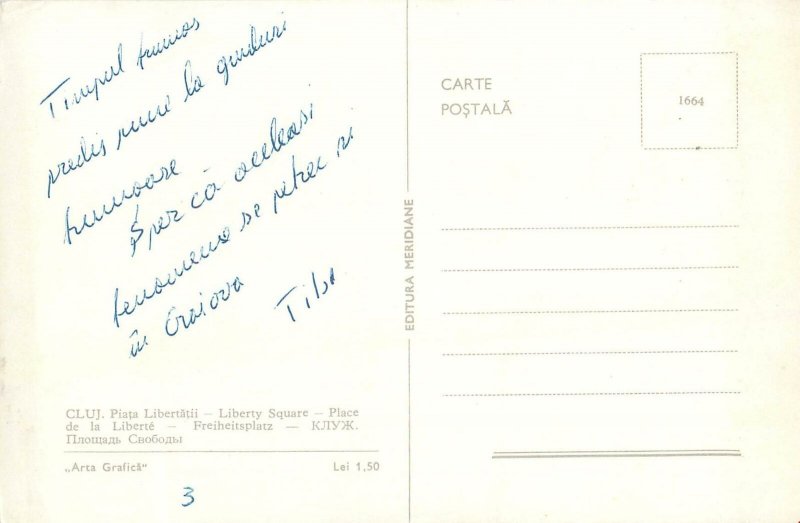 Timpul frumos
predispune la gînduri
frumoase
Sper că aceleasi
fenomene se petrec si
în Craiova
CLUJ. Piața Libertății — Liberty Square — Place
de la Liberté — Freiheitsplatz — КЛУЖ.
Площадь Свободы
„Arta Grafică" Lei 1,50
3
EDITURA MERIDIANE
CARTE
POȘTALĂ
1664